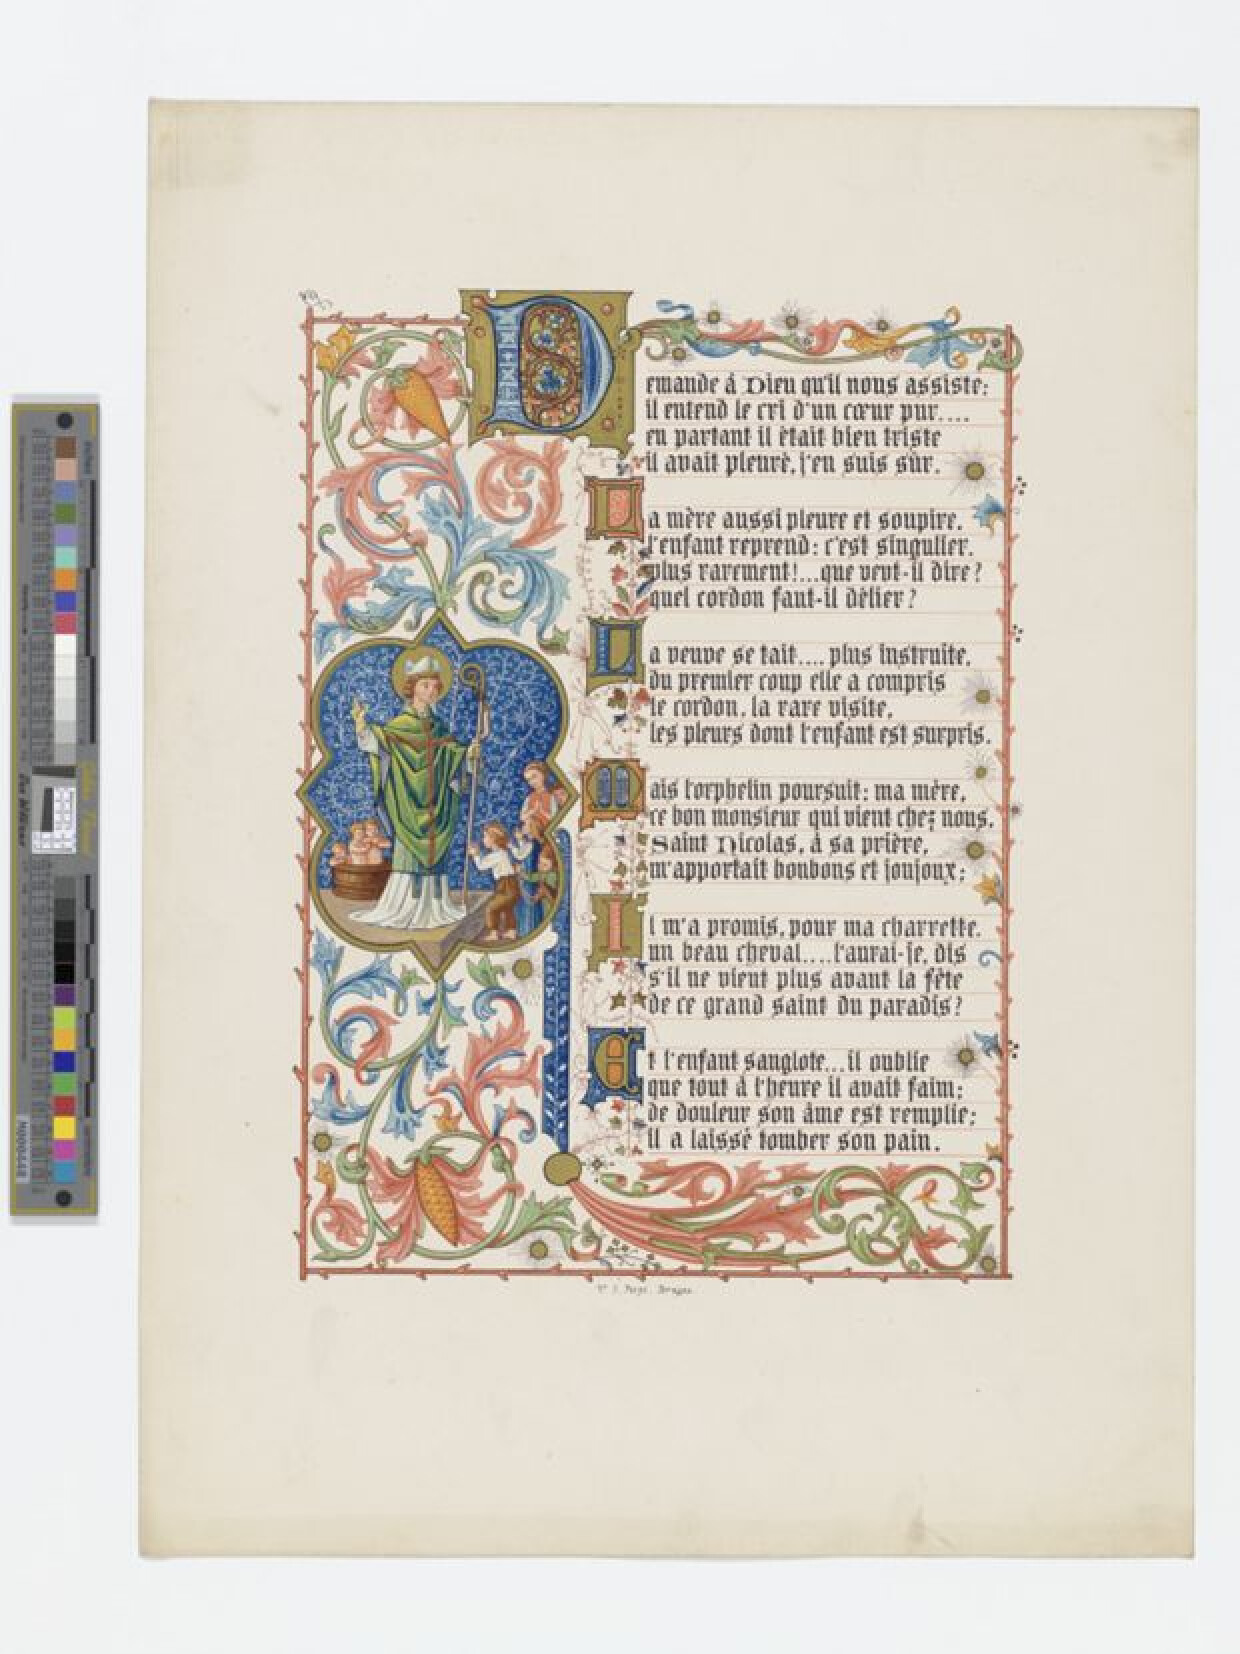 Demande à Dieu qu'il nous assiste;
il entend le cri d'un cœur pur....
en partant il était bien triste
il avait pleuré, j'en suis sûr.
La mère aussi pleure et soupire.
l'enfant reprend: c'est singulier.
plus rarement!...que veut-il dire?
quel cordon faut-il délier?
La veuve se tait.... plus instruite,
du premier coup elle a compris
le cordon, la rare visite,
les pleurs dont l'enfant est surpris.
Mais l'orphelin poursuit: ma mère,
ce bon monsieur qui vient chez nous,
Saint Nicolas, à sa prière,
m'apportait bonbons et joujoux;
Il m'a promis, pour ma charrette,
un beau cheval....l'aurai-je, dis
s'il ne vient plus avant la fête
de ce grand saint du paradis?
Et l'enfant sanglote...il oublie
que tout à l'heure il avait faim;
de douleur son âme est remplie;
il a laissé tomber son pain.
Bruges.